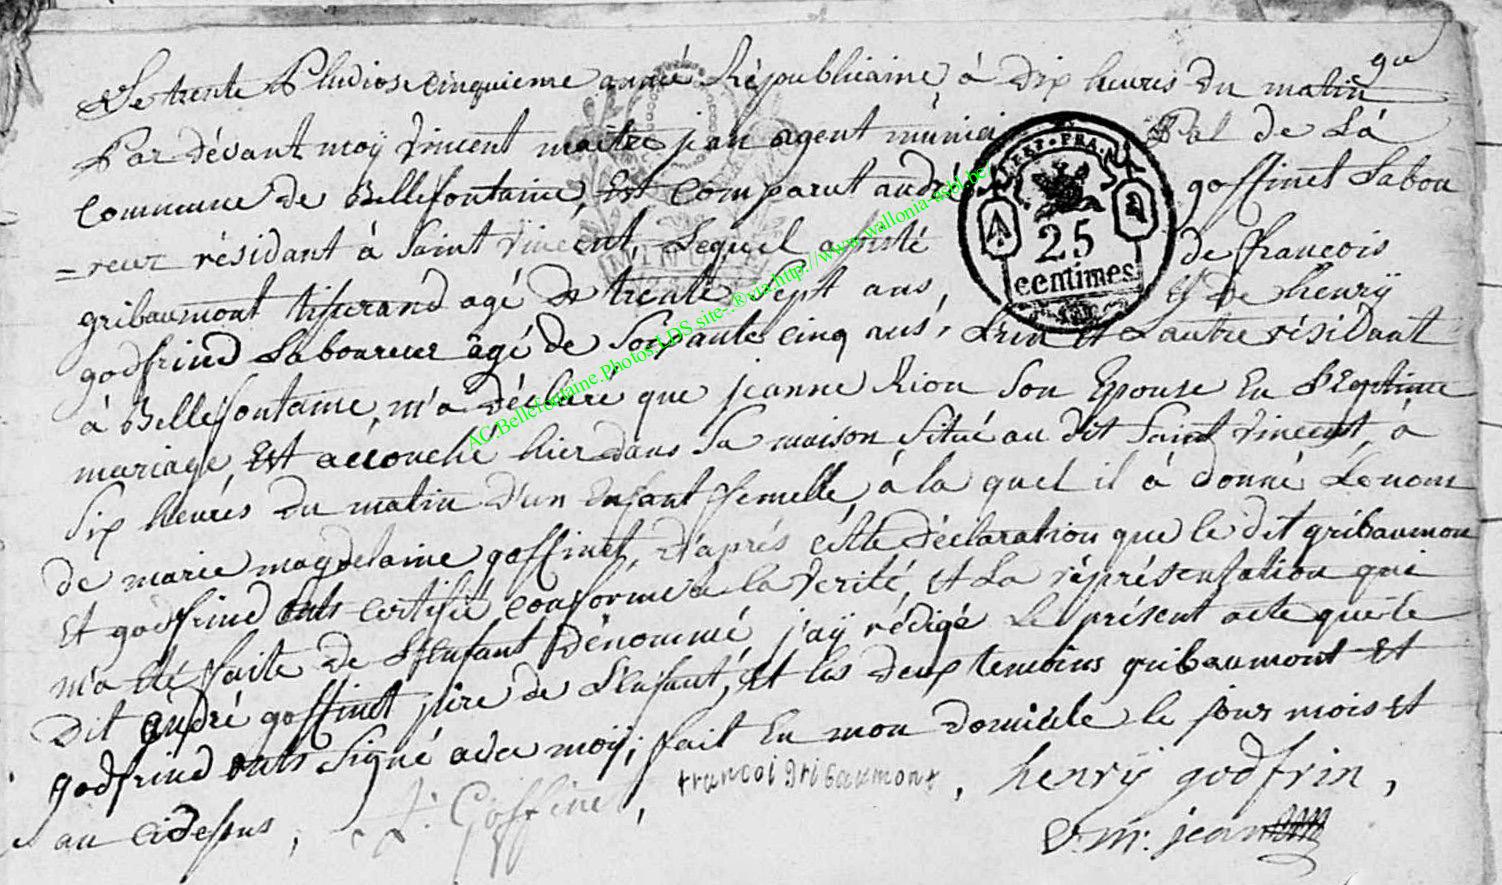 Le trente Pluviose cinquieme année Républicaine, à dix heures du matin
Par dévant moÿ Vincent maitre jean agent munici Pal de La
commune de Bellefontaine, Est comparut andré goffinet Labou
=reur résidant à Saint Vincent, Lequel assisté de francois
gribaumont tisserand agé de trente Sept ans, Et de henrÿ
godfrind Laboureur âgé de Soixante cinq ans, L'un et L'autre résidant
à Bellefontaine, m'a déclaré que jeanne Rion Son Epouse En
mariage, Est accouché hier dans Sa maison Situé au dit Saint Vincent, à
Six heures du matin d'un Enfant femelle, à la quel il à donné Le nom
de marie magdelaine goffinet, d'aprés cette déclaration que le dit gribaumon
Et godfrind onts certifié conforme a la Verité, Et La réprésentation qui
m'a été faite de L'Enfant dénommé, j'aÿ rédigé Le présent acte que le
Dit andré goffinet pére de L'Enfant, Et les deux temoins gribaumont Et
godfrind onts Signé avec moÿ; fait En mon domicile le jour mois et
an cidessus,
Goffinet, francoi gribaumont, henrÿ godfrin,
V. m. jean
REP. FRA.
25
centimes
AC.Bellefontaine.Photos.LDS.site-.®via.http://www.wallonia-asbl.be/